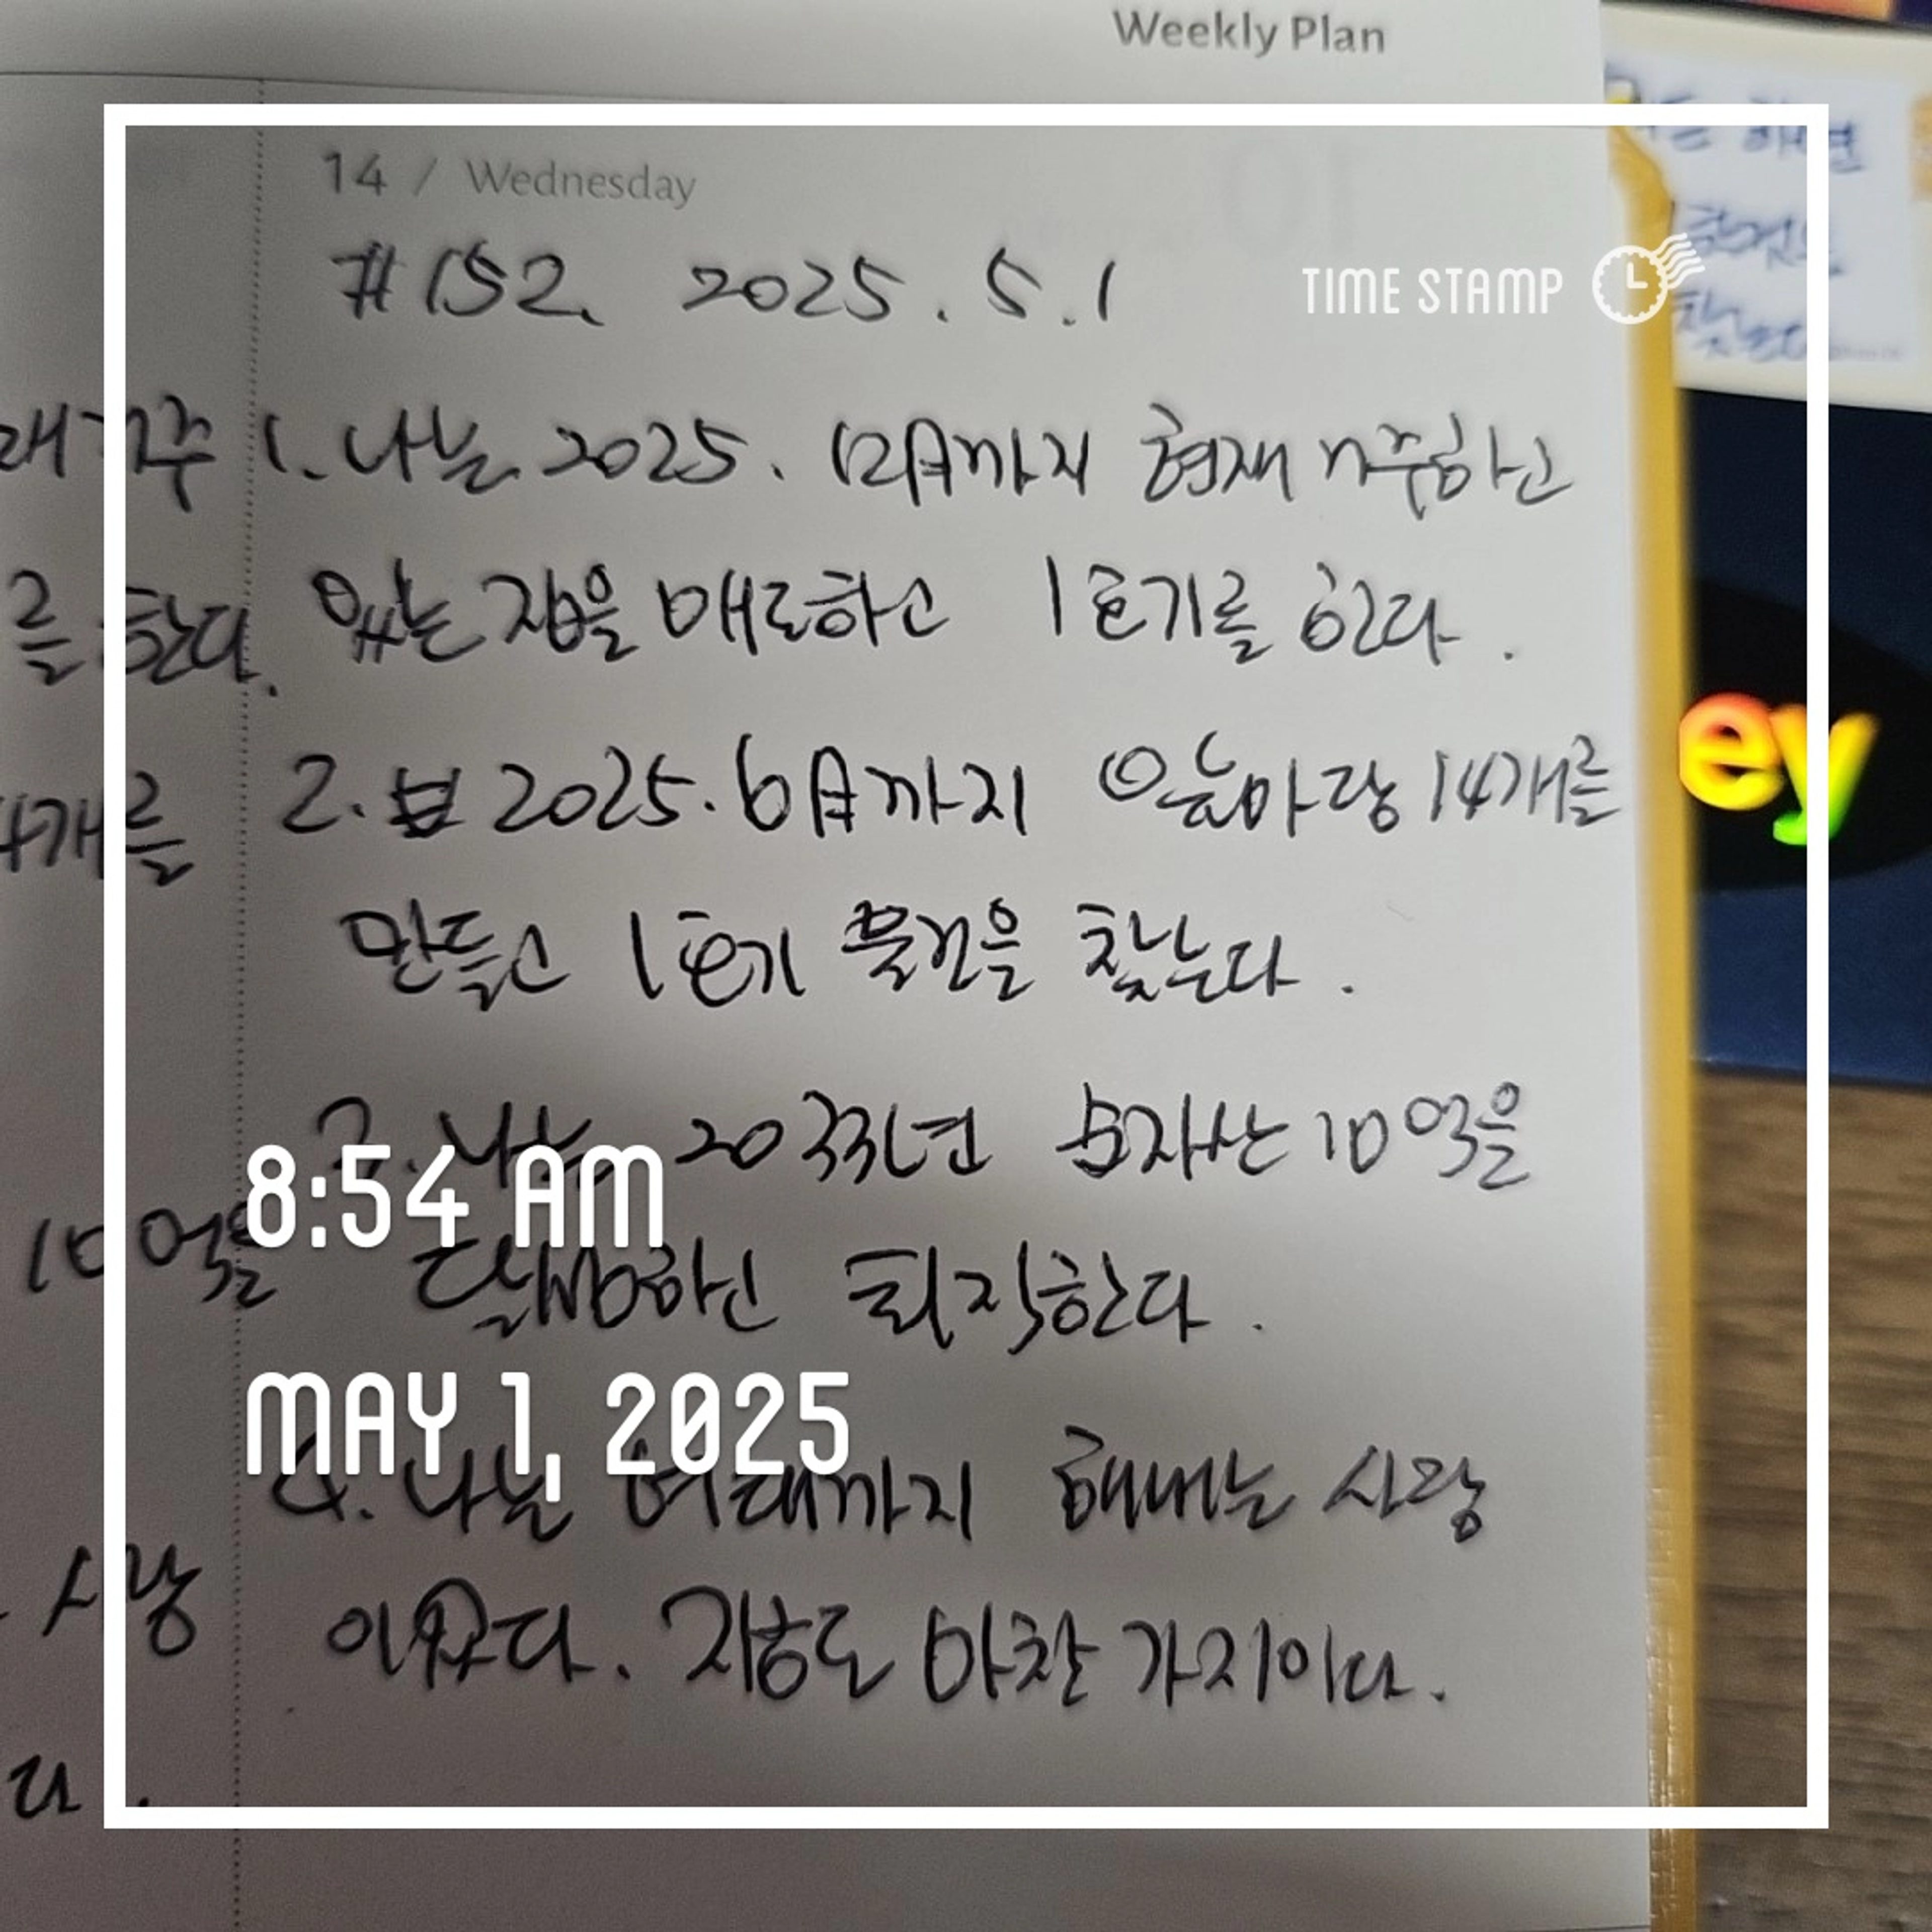 Weekly Plan
14 / Wednesday
#152. 2025.5.1
TIME STAMP
1. 나는 2025. 12月까지 현재 거주하고
있는 집을 매도하고 1호기를 한다.
2. 2025.6月까지 앞마당 14개를
만들고 1호기 물건을 찾는다.
3. 나는 2033년 순자산 10억을
8:54 AM
달성하고 퇴직한다.
MAY 1, 2025
4. 나는 여태까지 해내는 사람
이였다. 지금도 마찬가지이다.
거주
를 한다.
4개를
10억을
사람
다.
ey